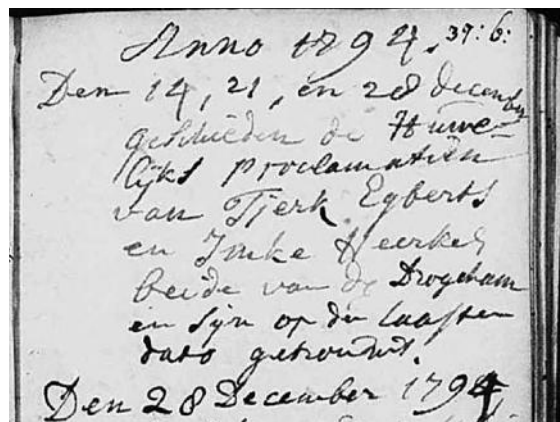 Anno 1794. 39: 6:
Den 14, 21, en 28 december
geschieden de Huwe-
lijks proclamatiën
van Tjerk Egberts
en Imke Heerkes
beide van de Drogeham
en Syn op den laasten
dato getrouwt.
Den 28 December 1794,